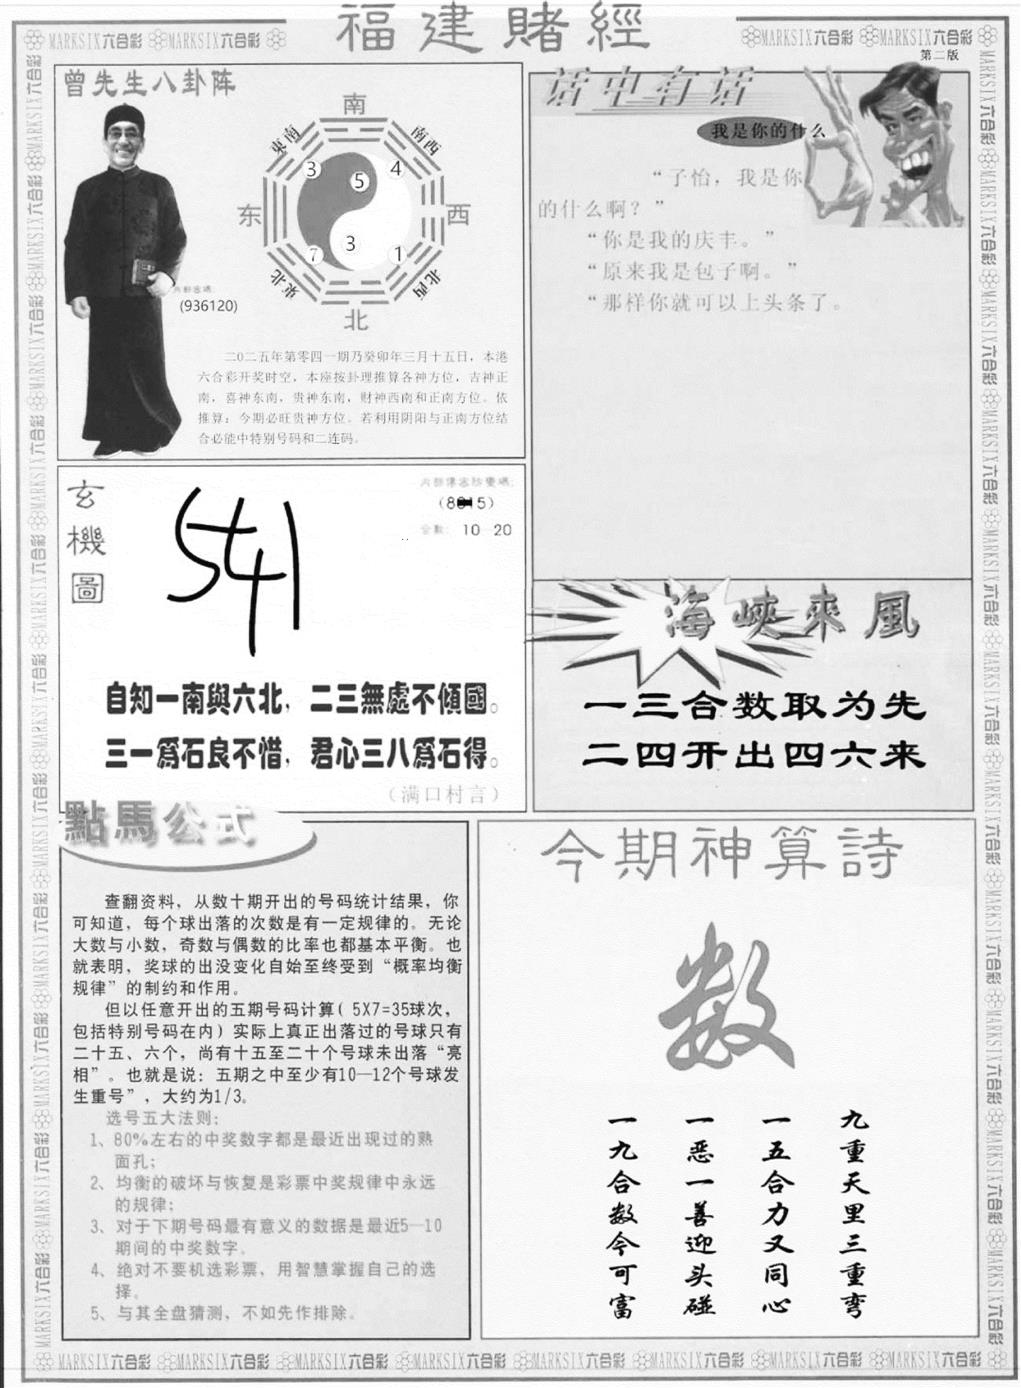 福建賭經
MARKSIX六合彩 MARKSIX六合彩
MARKSIX六合彩 MARKSIX六合彩
第二版
曾先生八卦阵
南
東南
南西
3
4
5
东
西
7
3
1
東北
北西
北
(936120)
二0二五年第零四一期乃癸卯年三月十五日，本港
六合彩开奖时空，本座按卦理推算各神方位，吉神正
南，喜神东南，贵神东南，财神西南和正南方位。依
推算：今期必旺贵神方位。若利用阴阳与正南方位结
合必能中特别号码和二连码。
话中有话
我是你的什么
“子怡，我是你
的什么啊？”
“你是我的庆丰。”
“原来我是包子啊。”
“那样你就可以上头条了。
玄機圖
541
合數： 10 20
自知一南與六北，二三無處不傾國。
三一爲石良不惜，君心三八爲石得。
（满口村言）
海峽來風
一三合数取为先
二四开出四六来
點馬公式
查翻资料，从数十期开出的号码统计结果，你
可知道，每个球出落的次数是有一定规律的。无论
大数与小数，奇数与偶数的比率也都基本平衡。也
就表明，奖球的出没变化自始至终受到“概率均衡
规律”的制约和作用。
但以任意开出的五期号码计算( 5X7=35球次，
包括特别号码在内）实际上真正出落过的号球只有
二十五、六个，尚有十五至二十个号球未出落“亮
相”。也就是说：五期之中至少有10—12个号球发
生重号”，大约为1/3。
选号五大法则：
1、80%左右的中奖数字都是最近出现过的熟
面孔；
2、均衡的破坏与恢复是彩票中奖规律中永远
的规律；
3、对于下期号码最有意义的数据是最近5—10
期间的中奖数字。
4、绝对不要机选彩票，用智慧掌握自己的选
择。
5、与其全盘猜测，不如先作排除。
今期神算詩
数
九重天里三重弯
一五合力又同心
一恶一善迎头碰
一九合数今可富
MARKSIX六合彩 MARKSIX六合彩 MARKSIX六合彩 MARKSIX六合彩 MARKSIX六合彩 MARKSIX六合彩 MARKSIX六合彩 MARKSIX六合彩